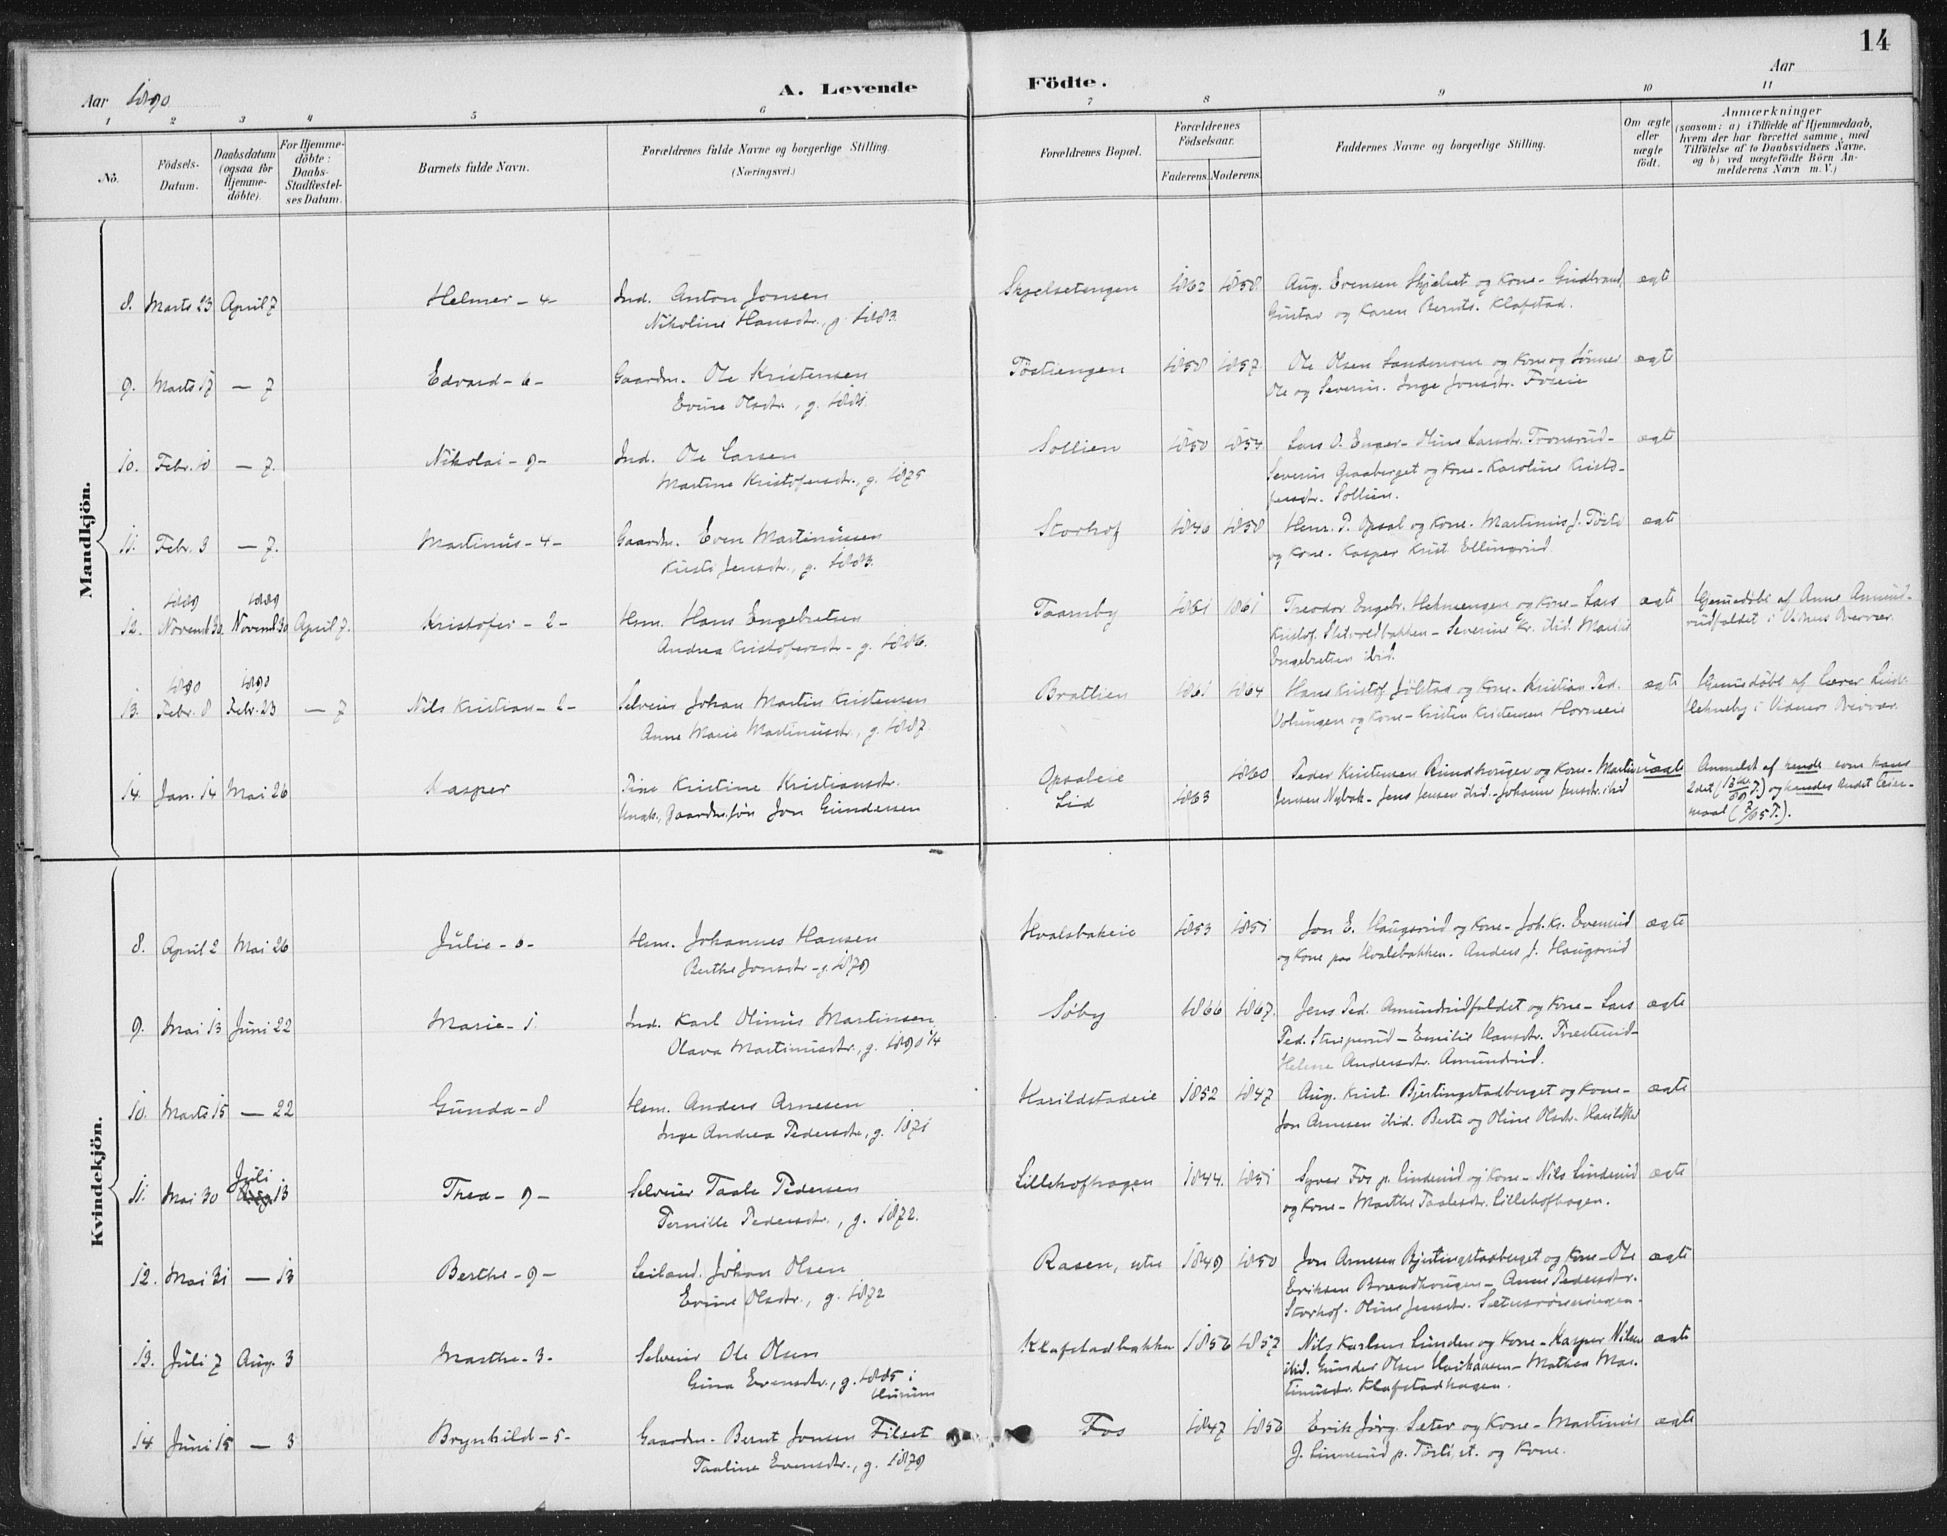 14
Aar 1890
A. Levende Födte.
Aar
1 2 3 4 5 6 7 8 9 10 11
No.
Födsels-Datum.
Daabsdatum (ogsaa for Hjemme-döbte).
For Hjemme-döbte: Daabs-Stadfæstel-ses Datum.
Barnets fulde Navn.
Forældrenes fulde Navne og borgerlige Stilling. (Næringsvei.)
Forældrenes Bopæl.
Forældrenes Födselsaar.
Faderens. Moderens.
Faddernes Navne og borgerlige Stilling.
Om ægte eller uægte født.
Anmærkninger
(saasom: a) i Tilfælde af Hjemmedaab,
hvem der har forrettet samme, med
Tilföielse af to Daabsvidners Navne,
og b) ved uægtefödte Börn An-
melderens Navn m.V.)
Mandkjön.
8. Marts 23 April 7 Helmer - 4 - Ind. Anton Jonsen Skjelsetengen 1862 1858 Aug. Evensen Skjelset og Kone - Gudbrand ægte
Nikoline Hansdtr., g. 1883. Gustav og Karen Bernts. Klafstad.
9. Marts 17 — 7 Edvard - 6 - Gaardm. Ole Kristensen Töstiengen 1858 1857. Ole Olsen Sandmoen og Kone og Sönner ægte
Evine Olsdtr., g. 1881. Ole og Severin. Inge Jonsdtr. Foseie
10. Febr. 10 — 7. Nikolai - 9 - Ind. Ole Larsen Sollien 1850 1854 Lars O. Enger - Stine Larsdtr. Tronsrud - ægte
Martine Kristofersdtr., g. 1875 Severin Graaberget og Kone - Karoline Kristo-
fersdtr. Sollien.
11. Febr. 3 — 7. Martinus - 4 - Gaardm. Even Martinussen Storhof 1846 1858 Henr. P. Opsal og Kone. Martinus J. Tösti ægte
Kirsti Jensdtr., g. 1883. og Kone. Kasper Krist. Ellingsrud.
1889 1889
12. Novemb. 30 Novemb. 30 April 7. Kristofer - 2 - Hsm. Hans Engebretsen Taamby 1861 1861 Theodor Engebr. Helmengen og Kone - Lars ægte Hjemmedöbt af Anne Amund-
Andrea Kristofersdtr. - g. 1886. Kristof. - Severine Kr. ibid. rudfaldet i Vidners Overvær.
Engebretsen ibid.
1890 1890
13. Febr. 8 Febr. 23 — 7 Nils Kristian - 2 - Selveier Johan Martin Kristensen Bratlien 1861 1864 Hans Kristof. Jölstad og Kone. Kristian Ped. ægte Hjemmedöbt af Lærer
Anne Marie Martinusdtr., g. 1887. og Kone - Kristen Kristensen Horneeie Helmeby i Vidners Overvær.
14. Jan. 14 Mai 26 Kasper Pige Kristine Kristiansdtr. Opsaleie 1860 Peder Kristensen Rundhaugen og Kone - Martin uægte Anmeldt af hende som hans
Ungk., Gaardm. Sön Jon Gundersen Lid 1863 Jensen Nybak - Jens Jensen ibid. - Johanne Jensdtr. ibid 2det og hendes andet Leier-
maal
Kvindekjön.
8. April 2 Mai 26 Julie - 6 - Hsm. Johannes Hansen Hvalsbakeie 1853 1851 Jon E. Haugsrud og Kone - Joh. Kr. Evenrud ægte
Berthe Jonsdtr - g. 1879 og Kone paa Hvalsbakken. Anders J. Haugsrud
9. Mai 13 Juni 22 Marie - 1. Ind. Karl Olinus Martinsen Söby 1866 1867. Jens Ped. Amundrudfaldet og Kone - Lars ægte
Olava Martinusdtr., g. 1890 1/4 Ped. - Emilie Hansdtr. -
Helene Andersdtr. Amundrud.
10. Marts 15 — 22 Gunda - 8 Hsm. Anders Arnesen Harildstadeie 1852 1847 Aug. Krist. Bjertingstadberget og Kone - ægte
Inge Andrea Pedersdtr., g. 1871 Jon Arnesen ibid. Berte og Oline Olsdr.
Juli
11. Mai 30 13 Thea - 9 - Selveier Taale Pedersen Lillehofhagen 1844. 1851 Syver Fos p. Linderud og Kone - Nils Linderud ægte
Pernille Pedersdtr., g. 1872. og Kone - Marthe Taalesdr. Lillehofhagen.
12. Mai 31 — 13 Berthe - 9 - Leiland. Johan Olsen Rasen, ytre 1849 1850 Jon Arnesen Bjertingstadberget og Kone - Ole ægte
Evine Olsdtr., g. 1872 Eriksen - Anne Pedersdtr.
Storhof. Oline Jensdtr.
13. Juli 7 Aug. 3 Marthe - 3 - Selveier Ole Olsen Klafstadbakken 1856 1857 Nils Karlsen Lunden og Kone - Kasper Nilsen ægte
Gina Evensdtr., g. 1885 i ibid. Gunder Olsen - Mathea Mar-
Hurum tinusdtr. Klafstadhagen.
14 Juni 15 — 3 Brynhild - 5 - Gaardm. Bernt Jonsen Filset Fos 1847 1856 Erik Jörg. Sæter og Kone - Martinus ægte
Taaline Evensdtr., g. 1879 J. Linnerud p. Tösti, et. og Kone.